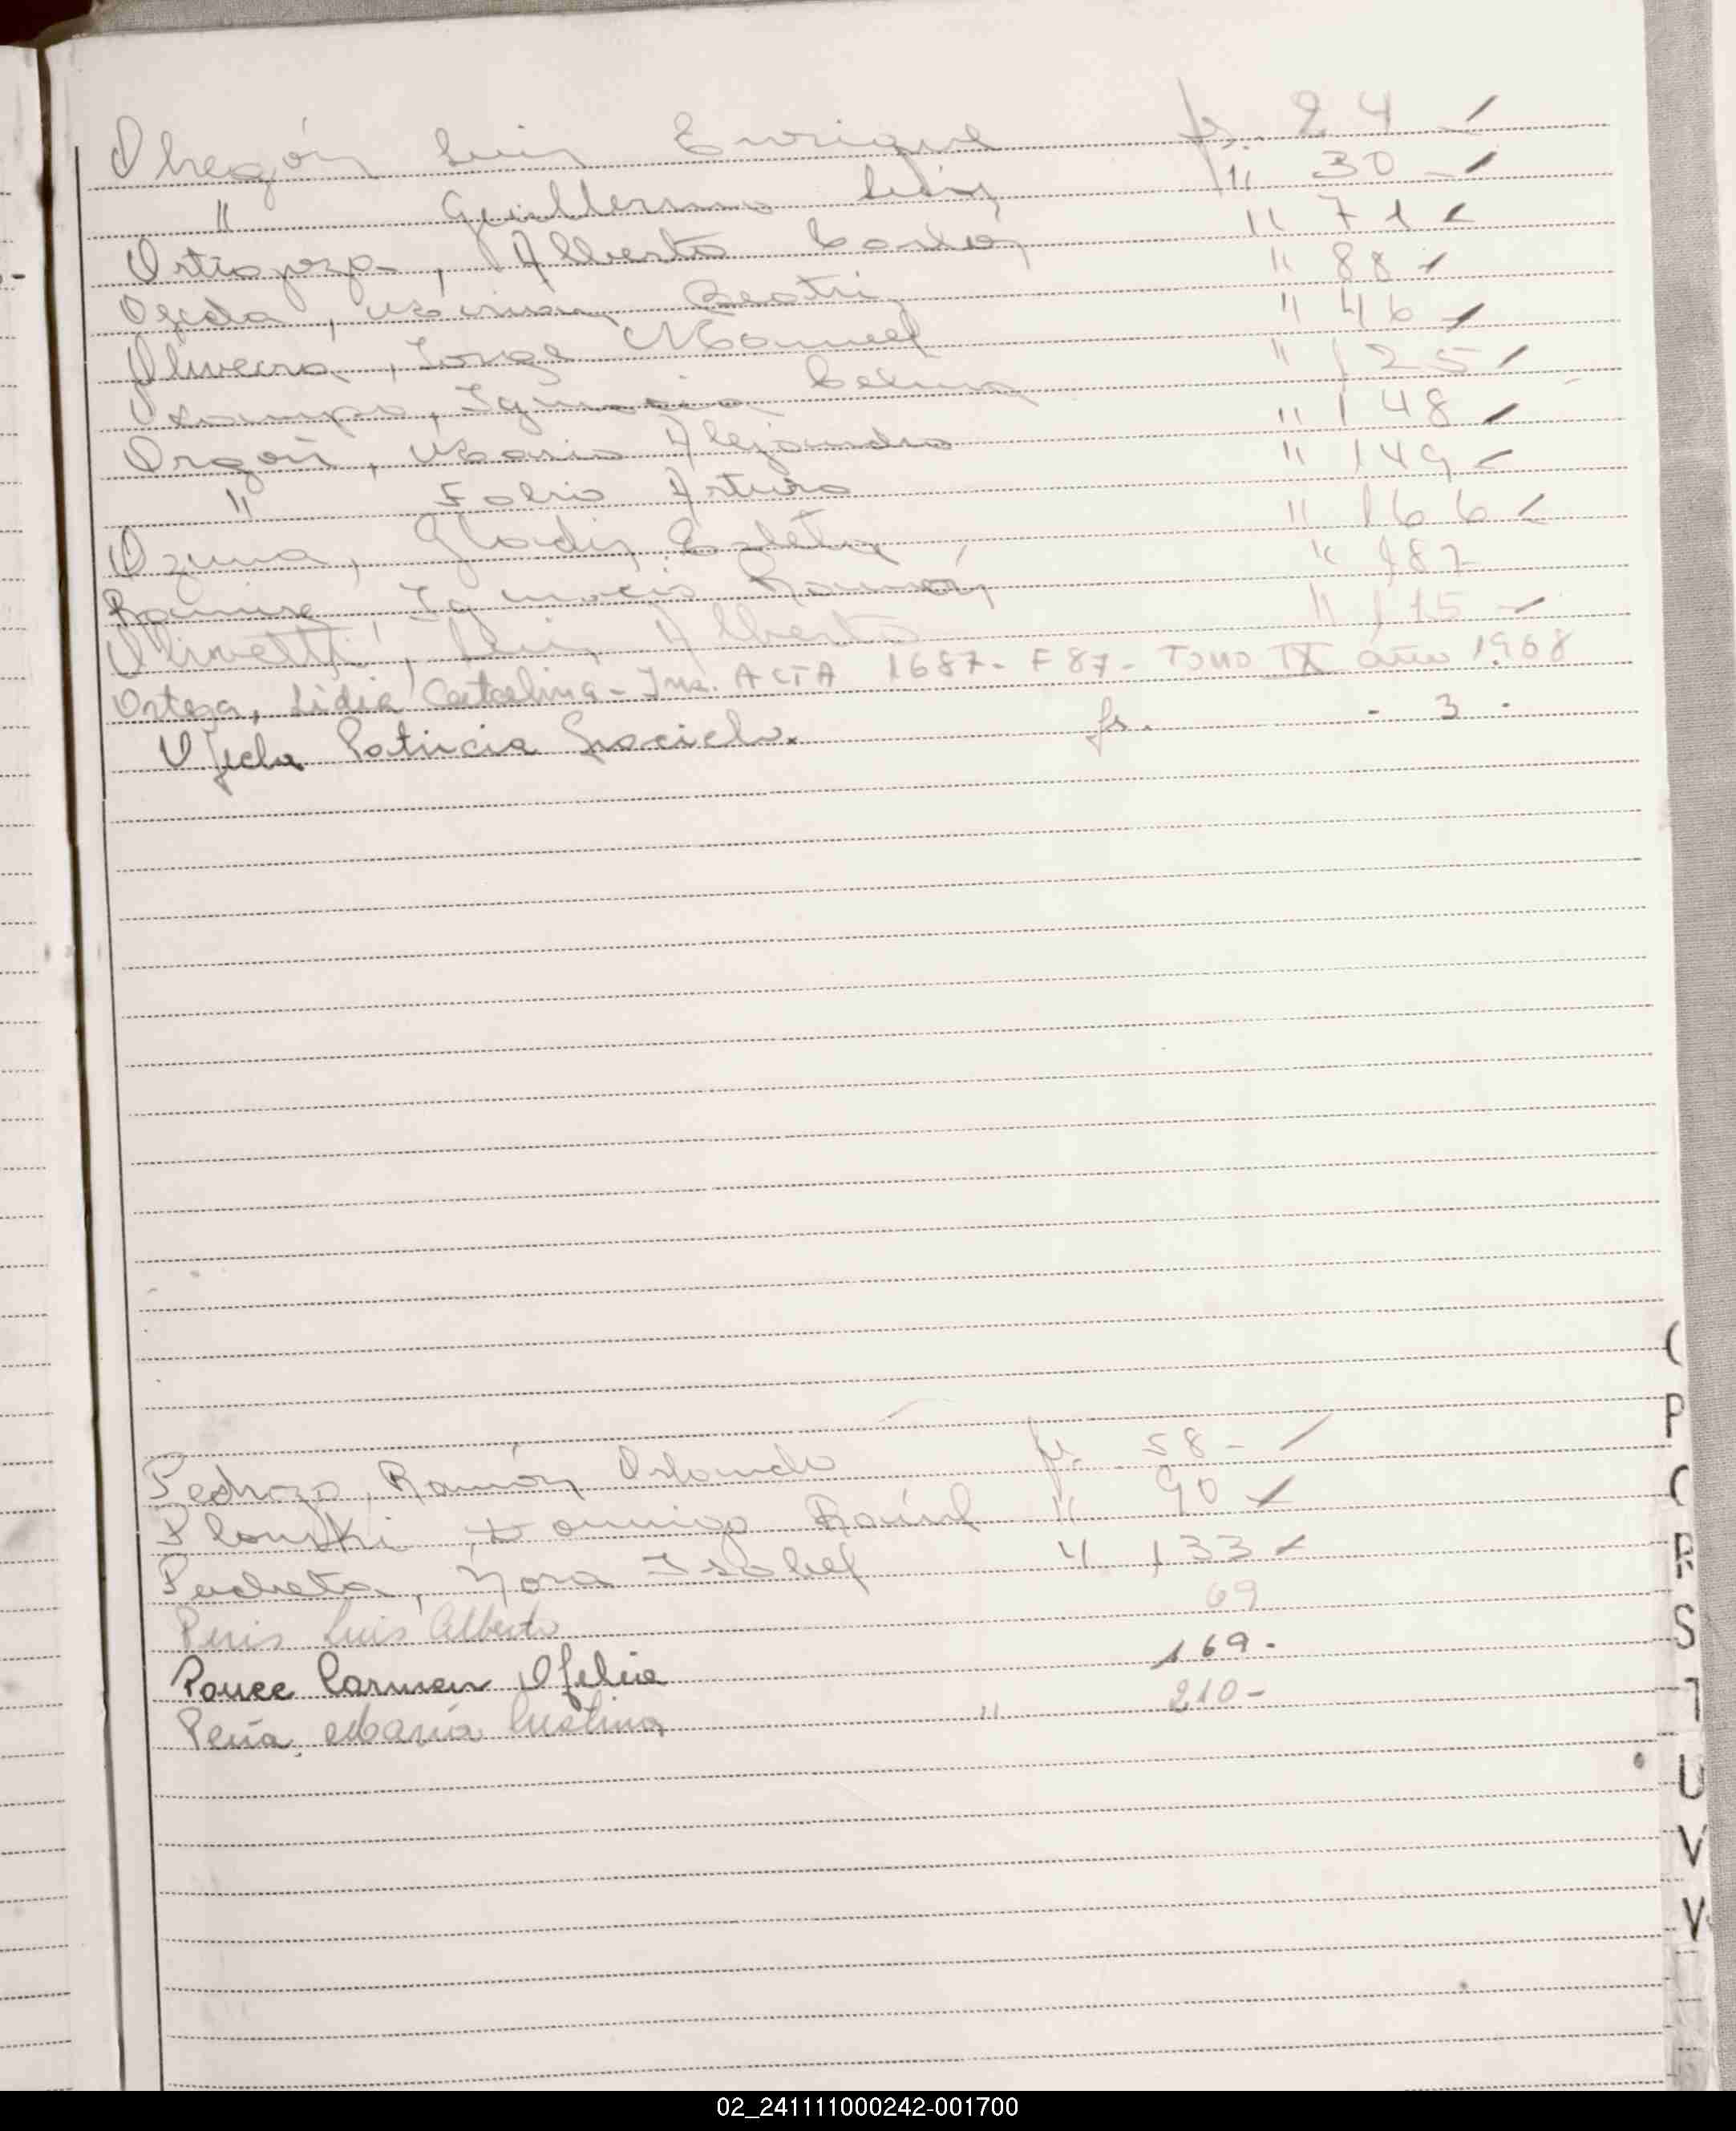 Obregón Luis Enrique fs. 24 -
" Guillermo Luis " 30 -
Ortiogoza, Alberto Carlos " 71
Ojeda, Miriam Beatriz " 88
Oliveira, Jorge Manuel " 46
Ocampo, Ignacia Celina " 125
Orgoñ, Mario Alejandro " 148
" Fabio Arturo " 149
Ozuna, Gladis Estela " 166
Ramirez Ignacio Ramón " 187
Olivetti, Luis Alberto " 115
Ortega, Lidia Catalina - Ins. ACTA 1687 - F 87 - TOMO IX año 1968
Ojeda Patricia Graciela. fs. - 3 -
Pedrozo, Ramón Orlando fs. 58 -
Plonski, Domingo Raúl " 90
Pucheta, Nora Isabel " 133
Peris Luis Alberto 69
Ponce Carmen Ofelia 169 -
Peña, María Cristina " 210 -
P
R
S
T
U
V
02_241111000242-001700